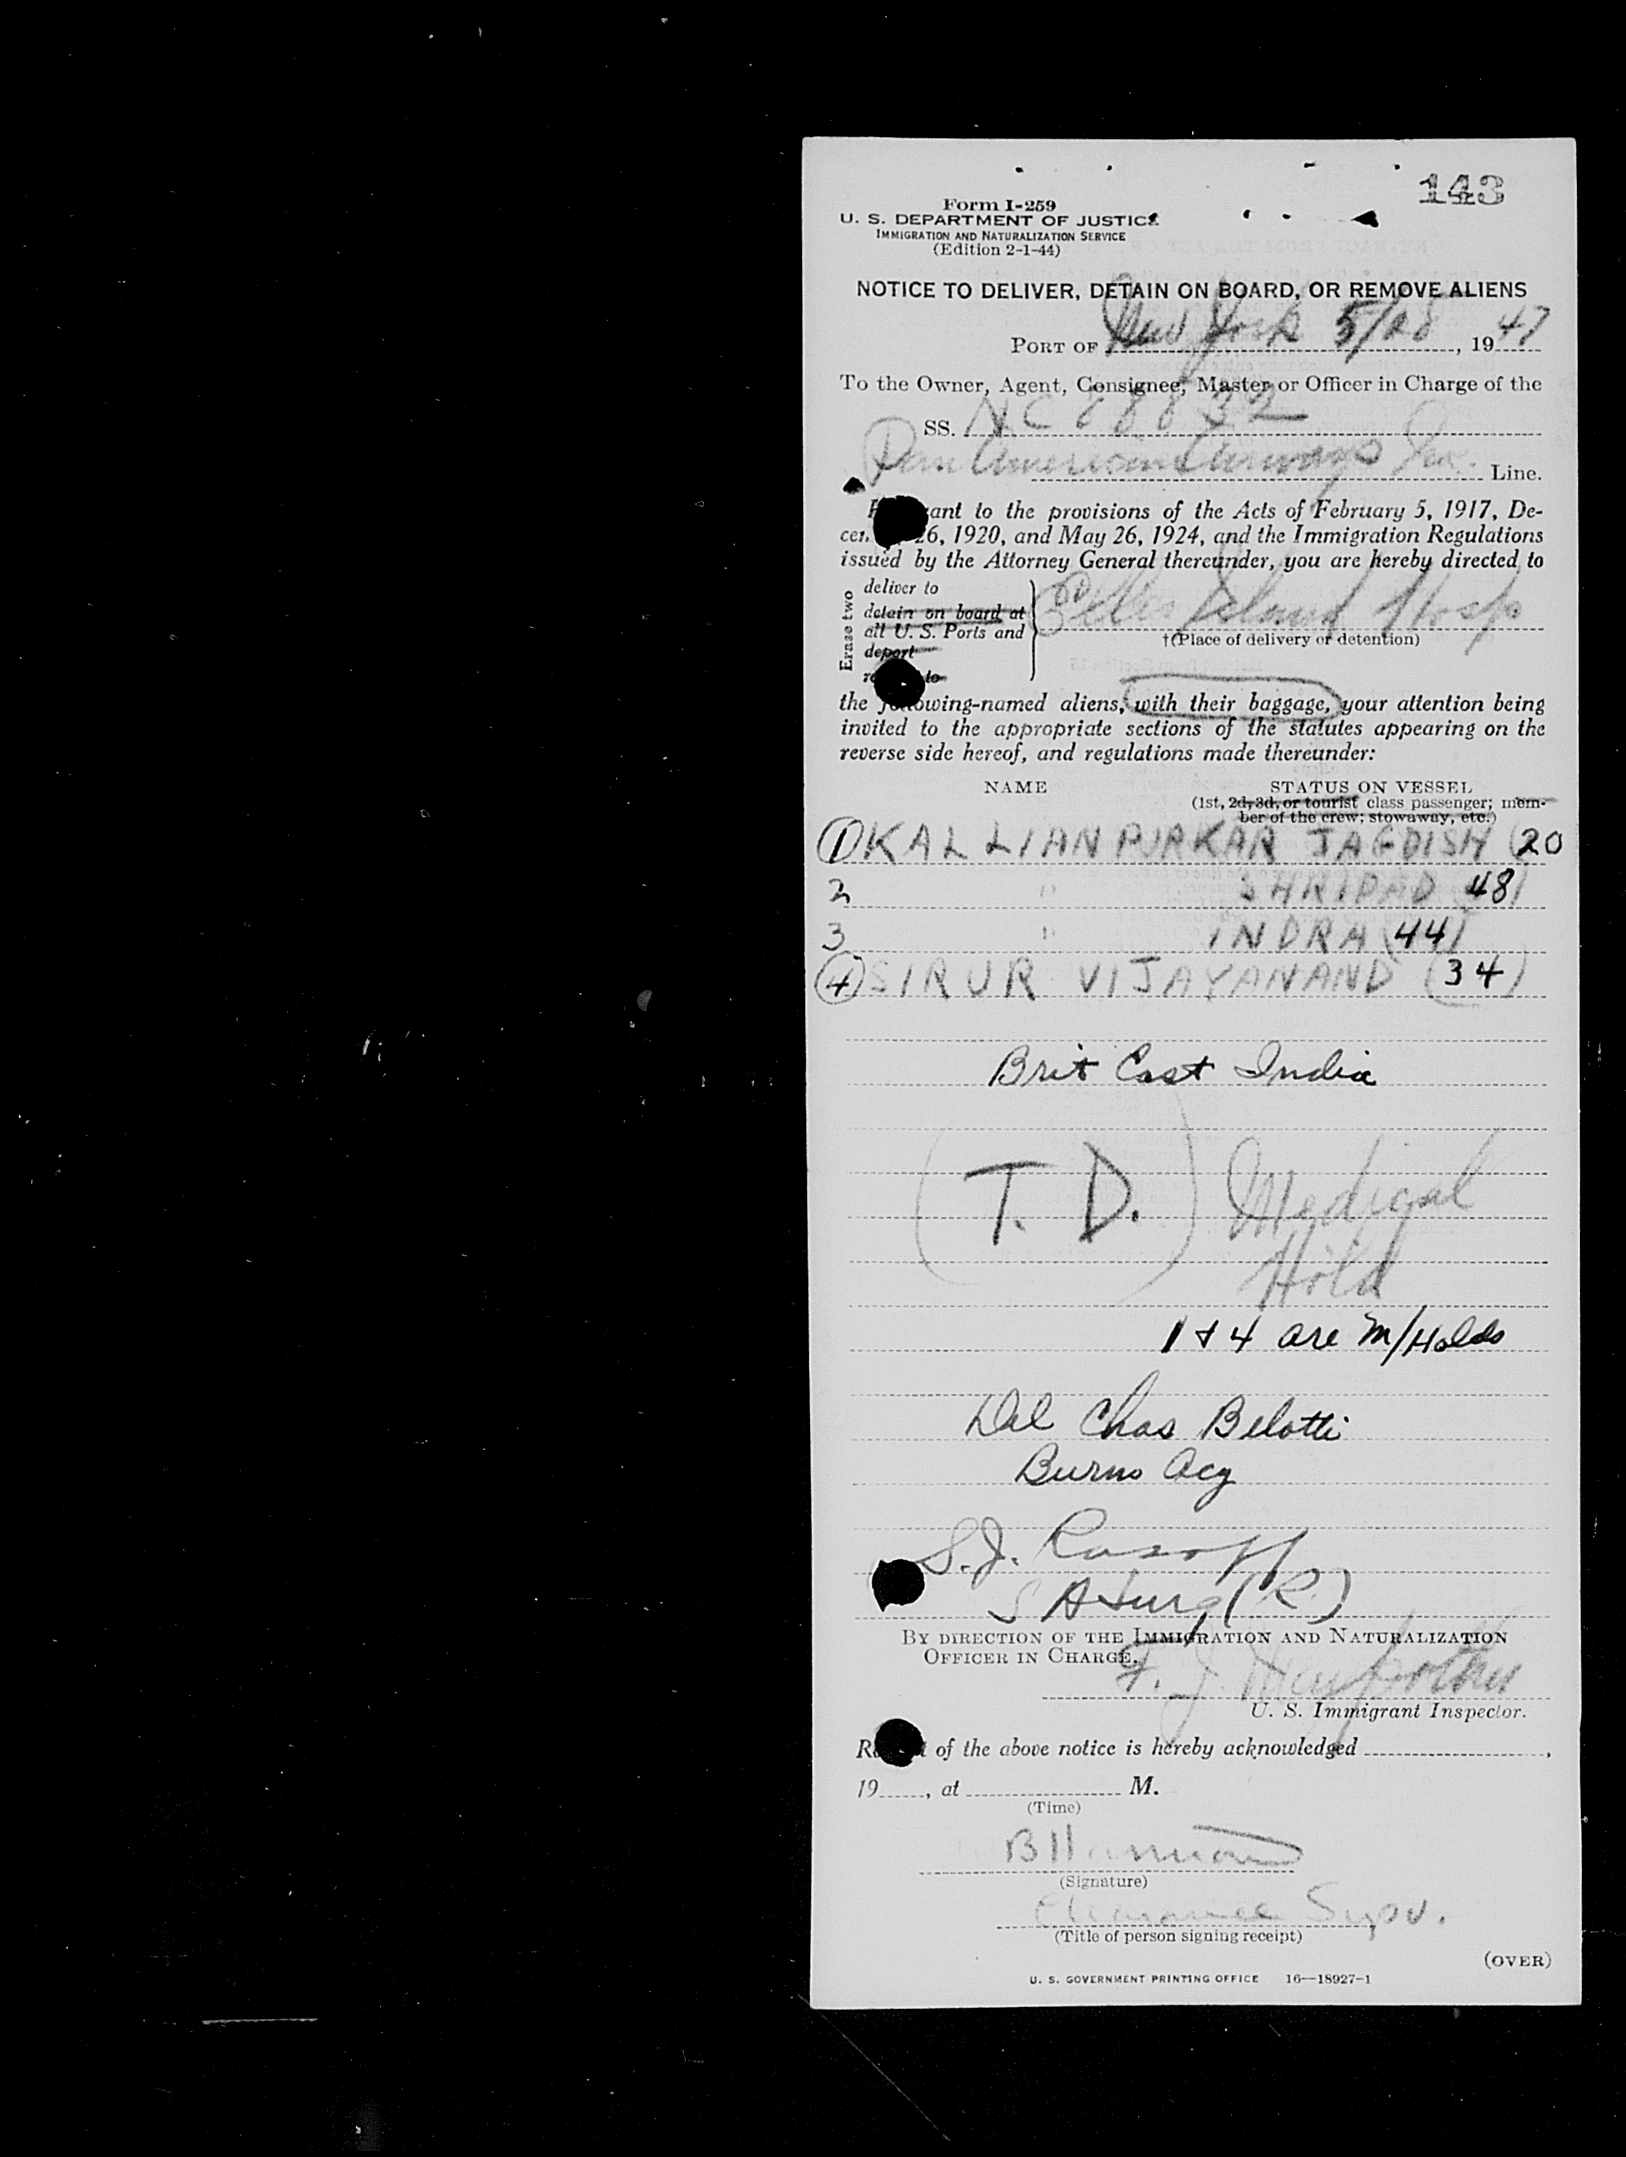 143
Form I-259
U. S. DEPARTMENT OF JUSTICE
IMMIGRATION AND NATURALIZATION SERVICE
(Edition 2-1-44)
NOTICE TO DELIVER, DETAIN ON BOARD, OR REMOVE ALIENS
PORT OF New York 5/28, 1947
To the Owner, Agent, Consignee, Master or Officer in Charge of the
SS. NC 88832
Pan American Airways Inc. Line.
ant to the provisions of the Acts of February 5, 1917, De-
26, 1920, and May 26, 1924, and the Immigration Regulations
issued by the Attorney General thereunder, you are hereby directed to
Erase two
deliver to
detain on board at
all U. S. Ports and
deport
to
Ellis Island Hosp
†(Place of delivery or detention)
the following-named aliens, with their baggage, your attention being
invited to the appropriate sections of the statutes appearing on the
reverse side hereof, and regulations made thereunder:
NAME STATUS ON VESSEL
(1st, 2d, 3d, or tourist class passenger; mem-
ber of the crew; stowaway, etc.)
1 KALLIANPURKAR JAGDISH (20
2 " SHRIPAD 48)
3 " INDRA (44)
4 SIRUR VIJAYANAND (34)
Brit East India
(T. D.) Medical
Hold
1 & 4 are M/Holds
Del Chas Belotti
Burns Acy
S.J. Rosoff
S A Surg (R)
BY DIRECTION OF THE IMMIGRATION AND NATURALIZATION
OFFICER IN CHARGE.
F. J.
U. S. Immigrant Inspector.
of the above notice is hereby acknowledged ,
19 , at M.
(Time)
(Signature)
Supv.
(Title of person signing receipt)
(OVER)
U. S. GOVERNMENT PRINTING OFFICE 16—18927-1